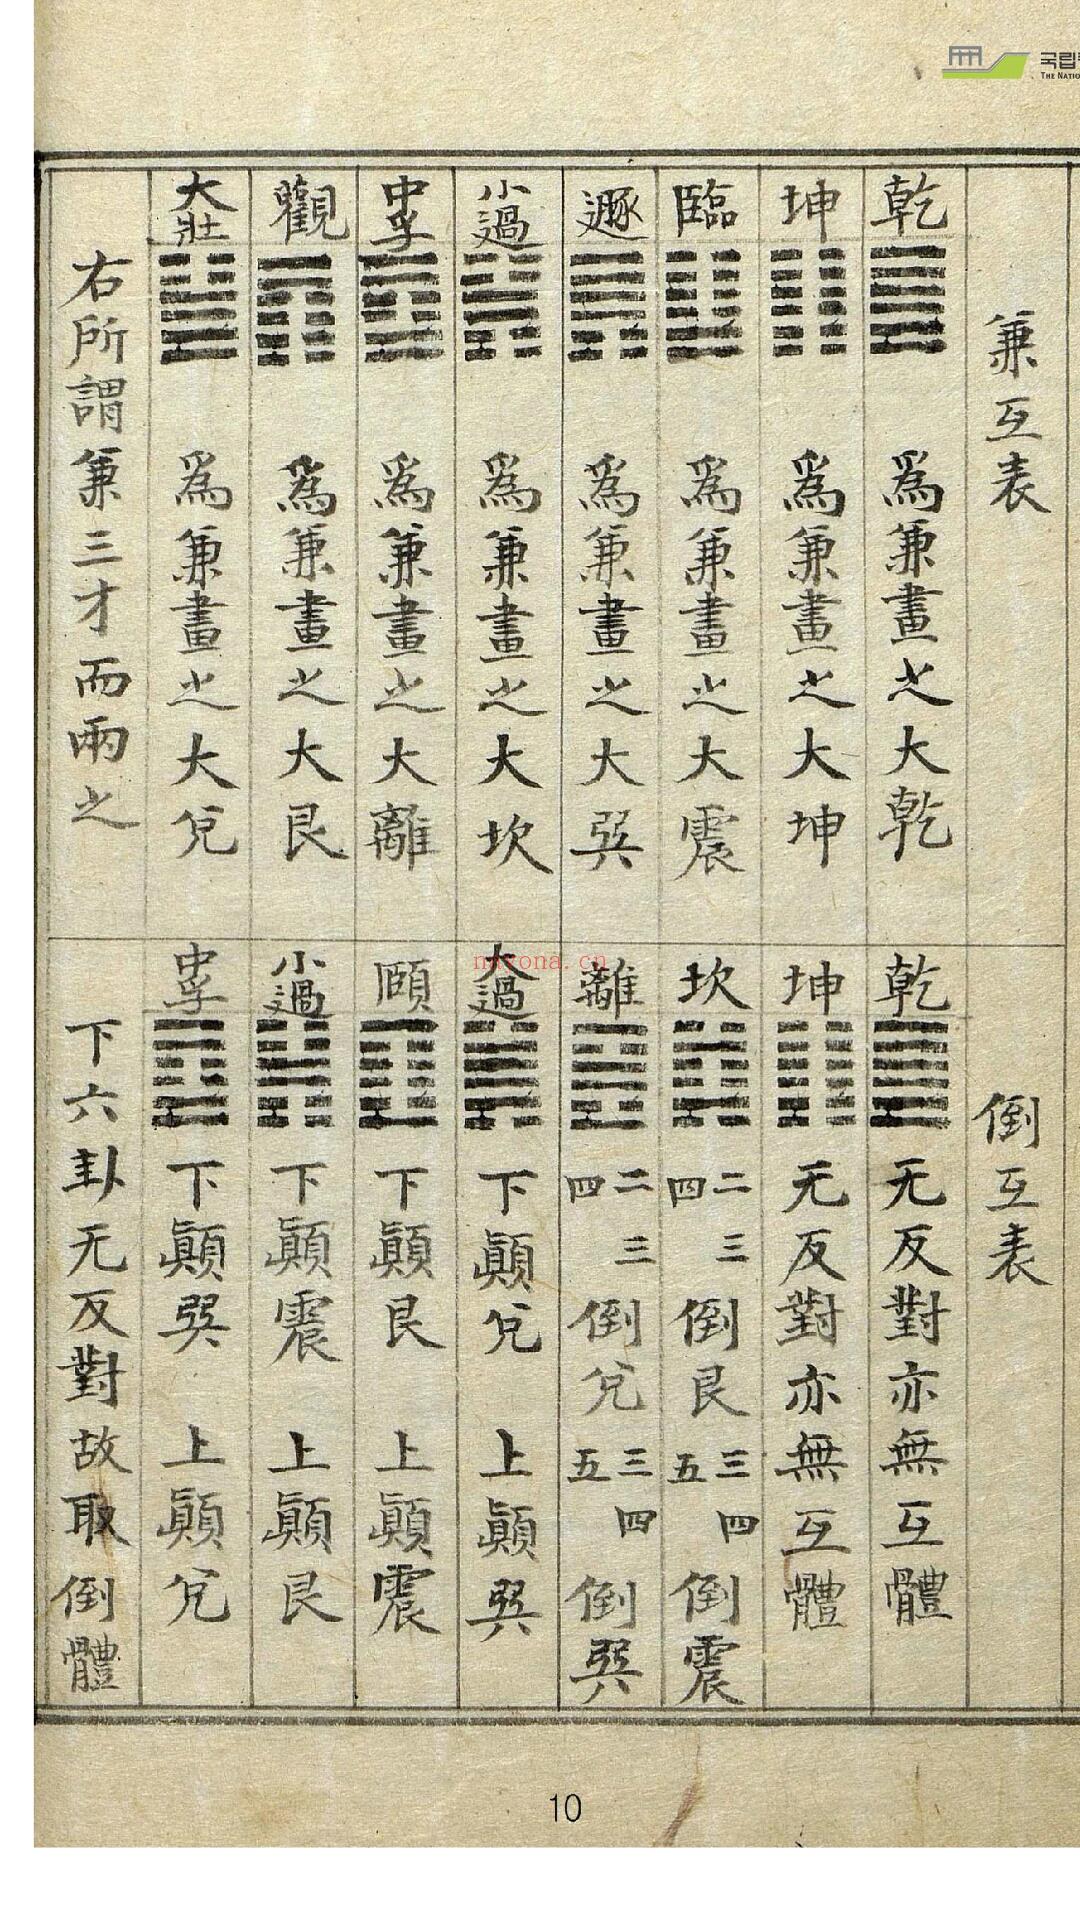 국립
THE NATIO
兼互表
乾 爲兼畫之大乾
坤 爲兼畫之大坤
臨 爲兼畫之大震
遯 爲兼畫之大巽
小過 爲兼畫之大坎
中孚 爲兼畫之大離
觀 爲兼畫之大艮
大壯 爲兼畫之大兌
右所謂兼三才而兩之
倒互表
乾 无反對亦無互體
坤 无反對亦無互體
坎 二三四倒艮 三四五倒震
離 二三四倒兌 三四五倒巽
大過 下顚兌 上顚巽
頤 下顚艮 上顚震
小過 下顚震 上顚艮
中孚 下顚巽 上顚兌
下六卦无反對故取倒體
nayona.cn
10